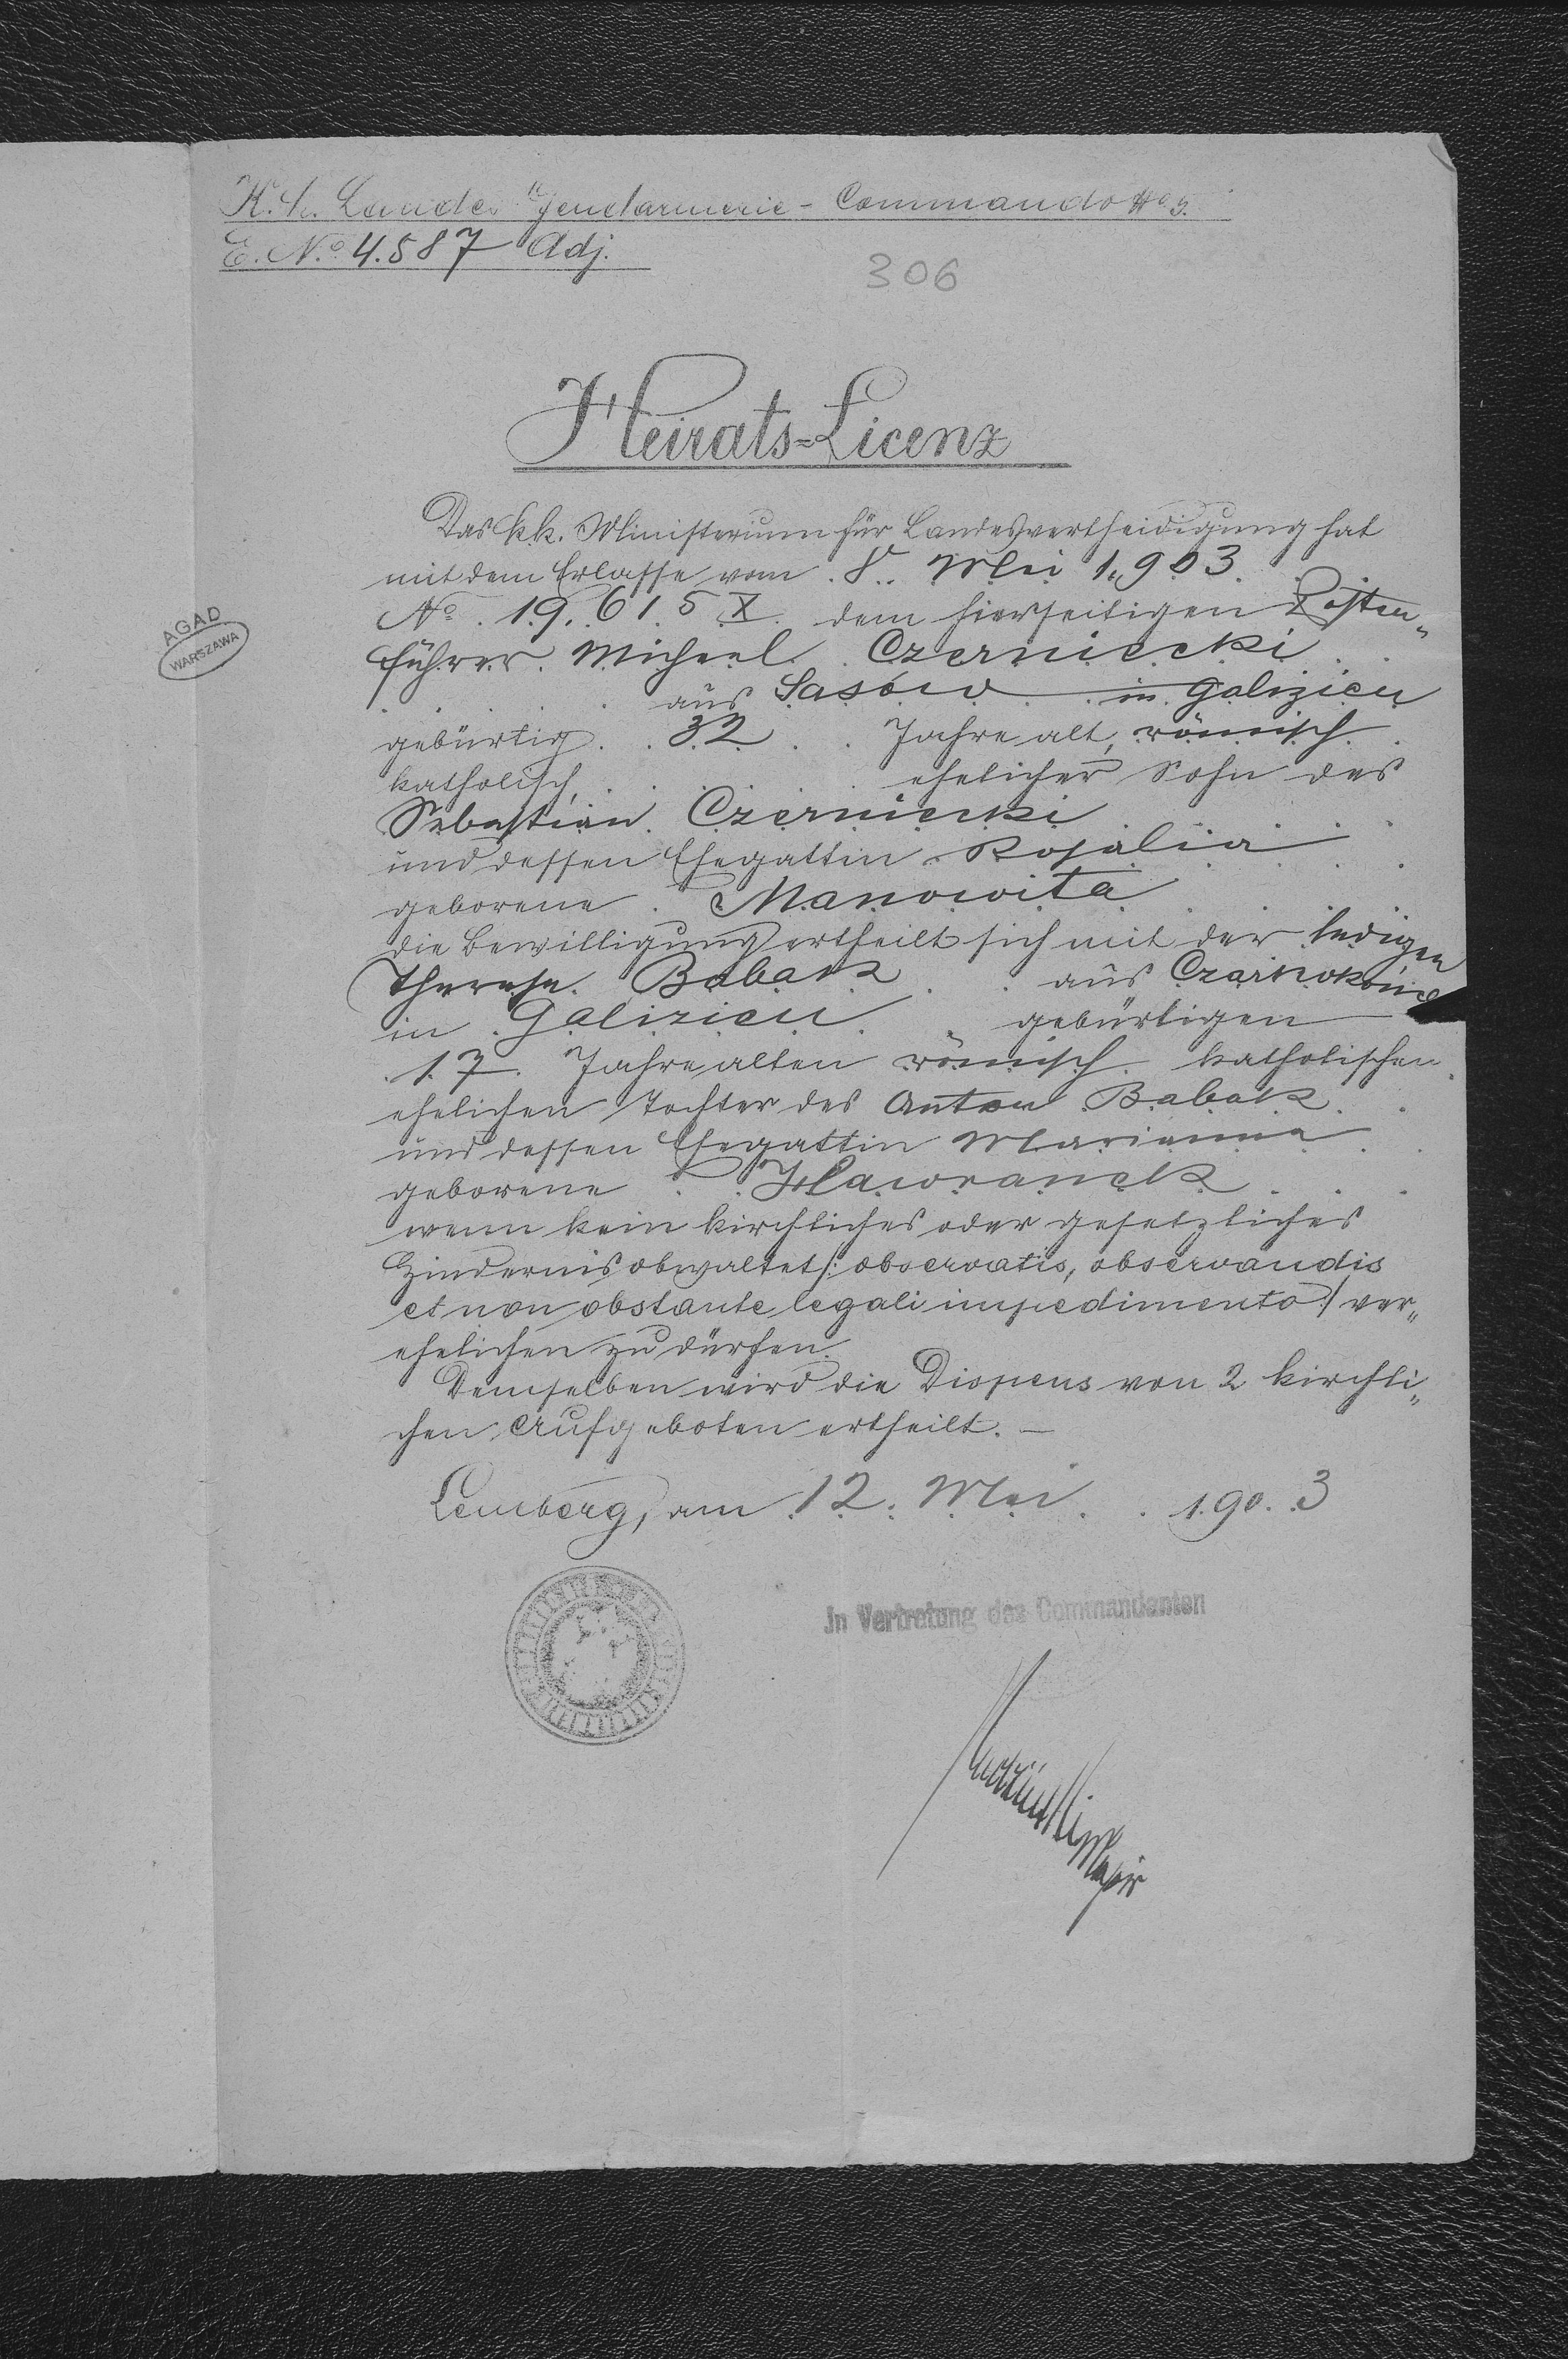 K. k. Landes Gendarmerie-Commando No 5.
E. No 4.587 Adj.
306
Heirats-Licenz
Das k.k. Ministerium für Landesvertheidigung hat
mit dem Erlasse vom 8. Mai 1903
No 19.615 X dem hierseitigen Posten„
führer Michael Czerniecki
aus Sasów in Galizien
gebürtig 32 Jahre alt, römisch
katholisch, ehelicher Sohn des
Sebastian Czerniecki
und dessen Ehegattin Rosalia
geborene Manowita
die Bewilligung ertheilt sich mit der ledigen
Therese Babak aus
in Galizien gebürtigen
17 Jahre alten römisch katholischen
ehelichen Tochter des Anton Babak
und dessen Ehegattin Marianna
geborene Hawranek
wenn kein kirchliches oder gesetzliches
Hindernis obwaltet /: observatis, observandis
et non obstante legali impedimento :/ ver„
ehelichen zu dürfen.
Demselben wird die Dispens von 2 kirchli„
chen Aufgeboten ertheilt. —
Lemberg, am 12. Mai 1903
In Vertretung des Commandanten
Major
AGAD
WARSZAWA